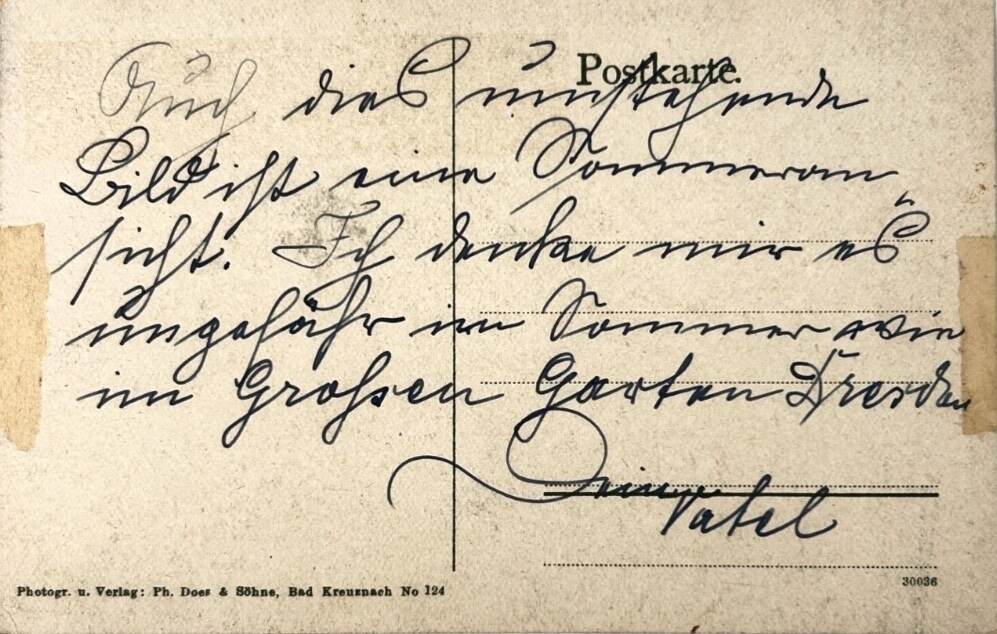 Postkarte.
Auch dies umstehende
Bild ist eine Sommeran„
sicht. Ich denke mir es
ungefähr im Sommer wie
im Großen Garten Dresden
Dein
Photogr. u. Verlag: Ph. Does & Söhne, Bad Kreuznach No 124
30036